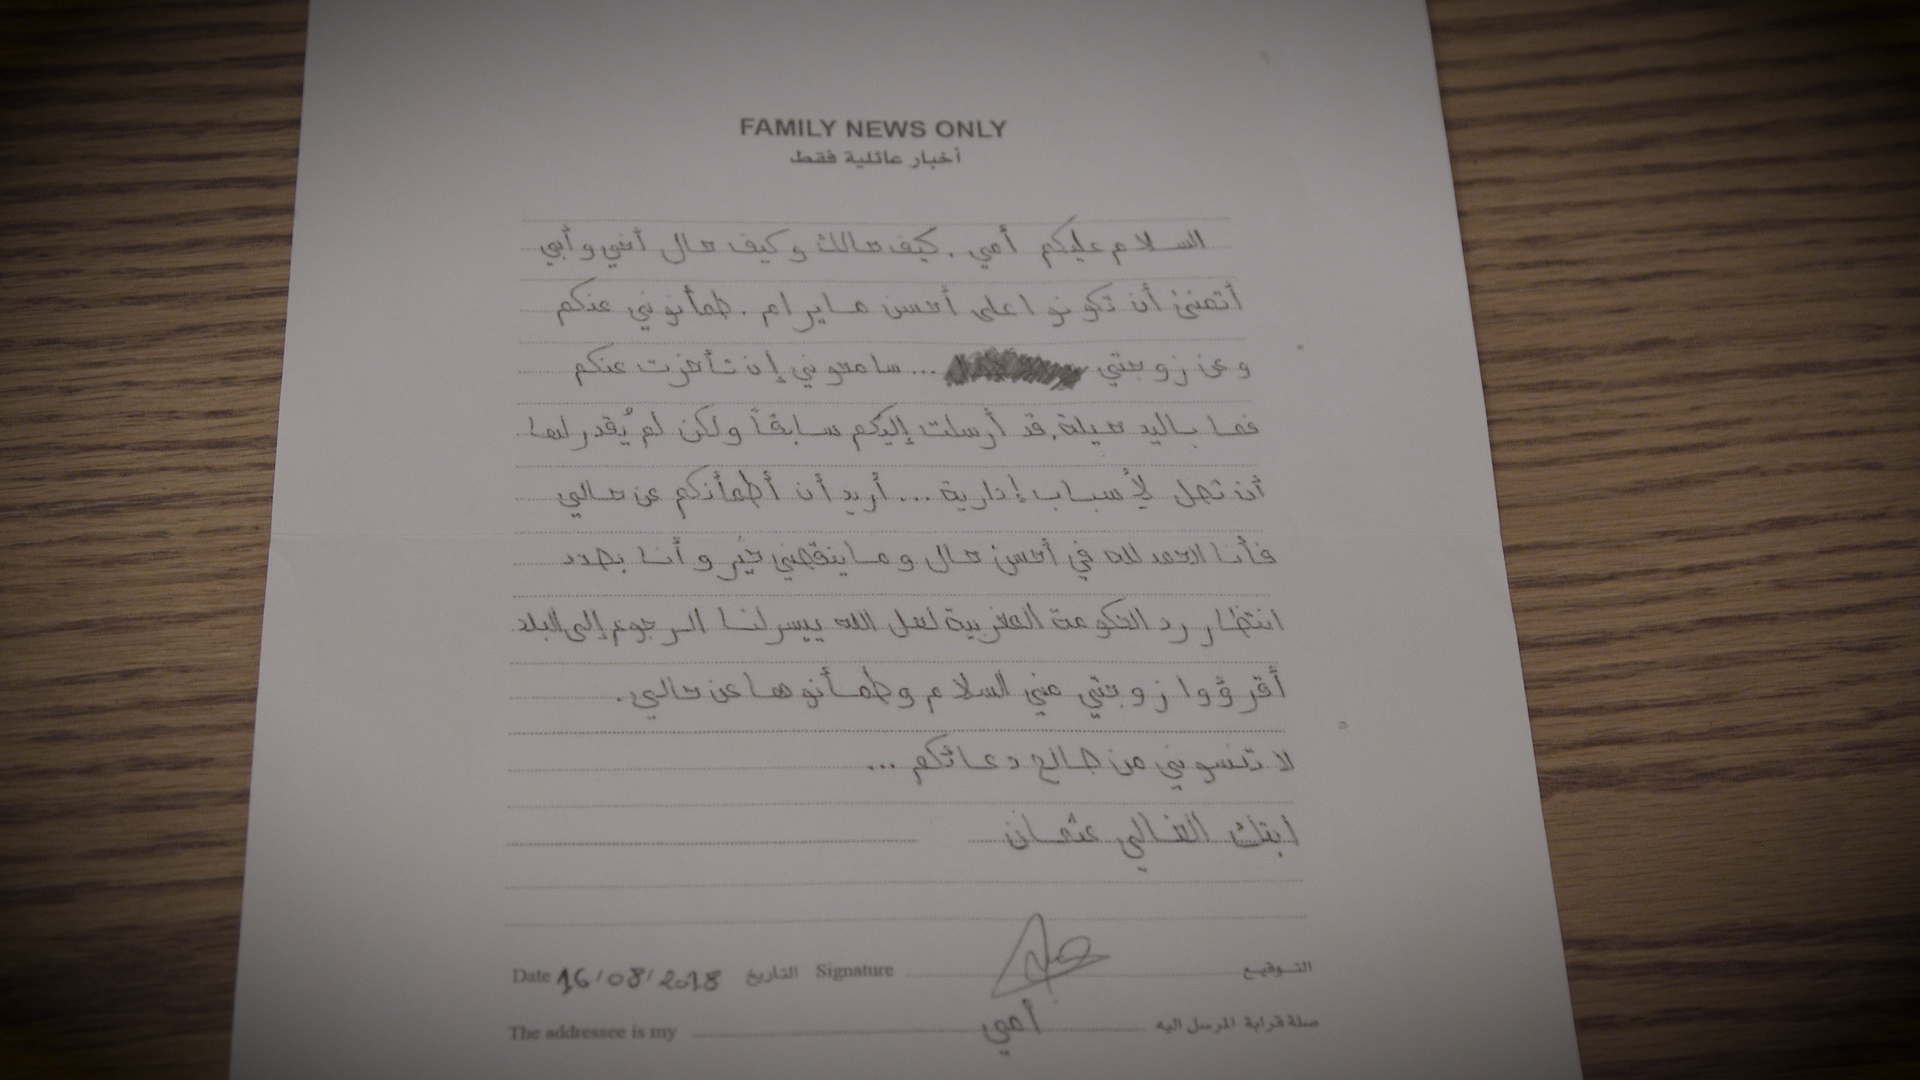 FAMILY NEWS ONLY
أخبار عائلية فقط
السلام عليكم أمي . كيف حالك وكيف حال أخي وأبي
أتمنى أن تكونوا على أحسن ما يرام . طمأنوني عنكم
وعن زوجتي ... سامحوني إن تأخرت عنكم
فما باليد حيلة، قد أرسلت إليكم سابقاً ولكن لم يُقدر لها
أن تصل لأسباب إدارية ... أريد أن أطمأنكم عن حالي
فأنا الحمد لله في أحسن حال وما ينقصني خير وأنا بصدد
انتظار رد الحكومة المغربية لعل الله ييسر لنا الرجوع إلى البلد
أقرؤوا زوجتي مني السلام وطمأنوها عن حالي .
لا تنسوني من صالح دعائكم ...
ابنك الغالي عثمان
Date 16/08/2018 التاريخ Signature التوقيع
The addressee is my أمي صلة قرابة المرسل اليه